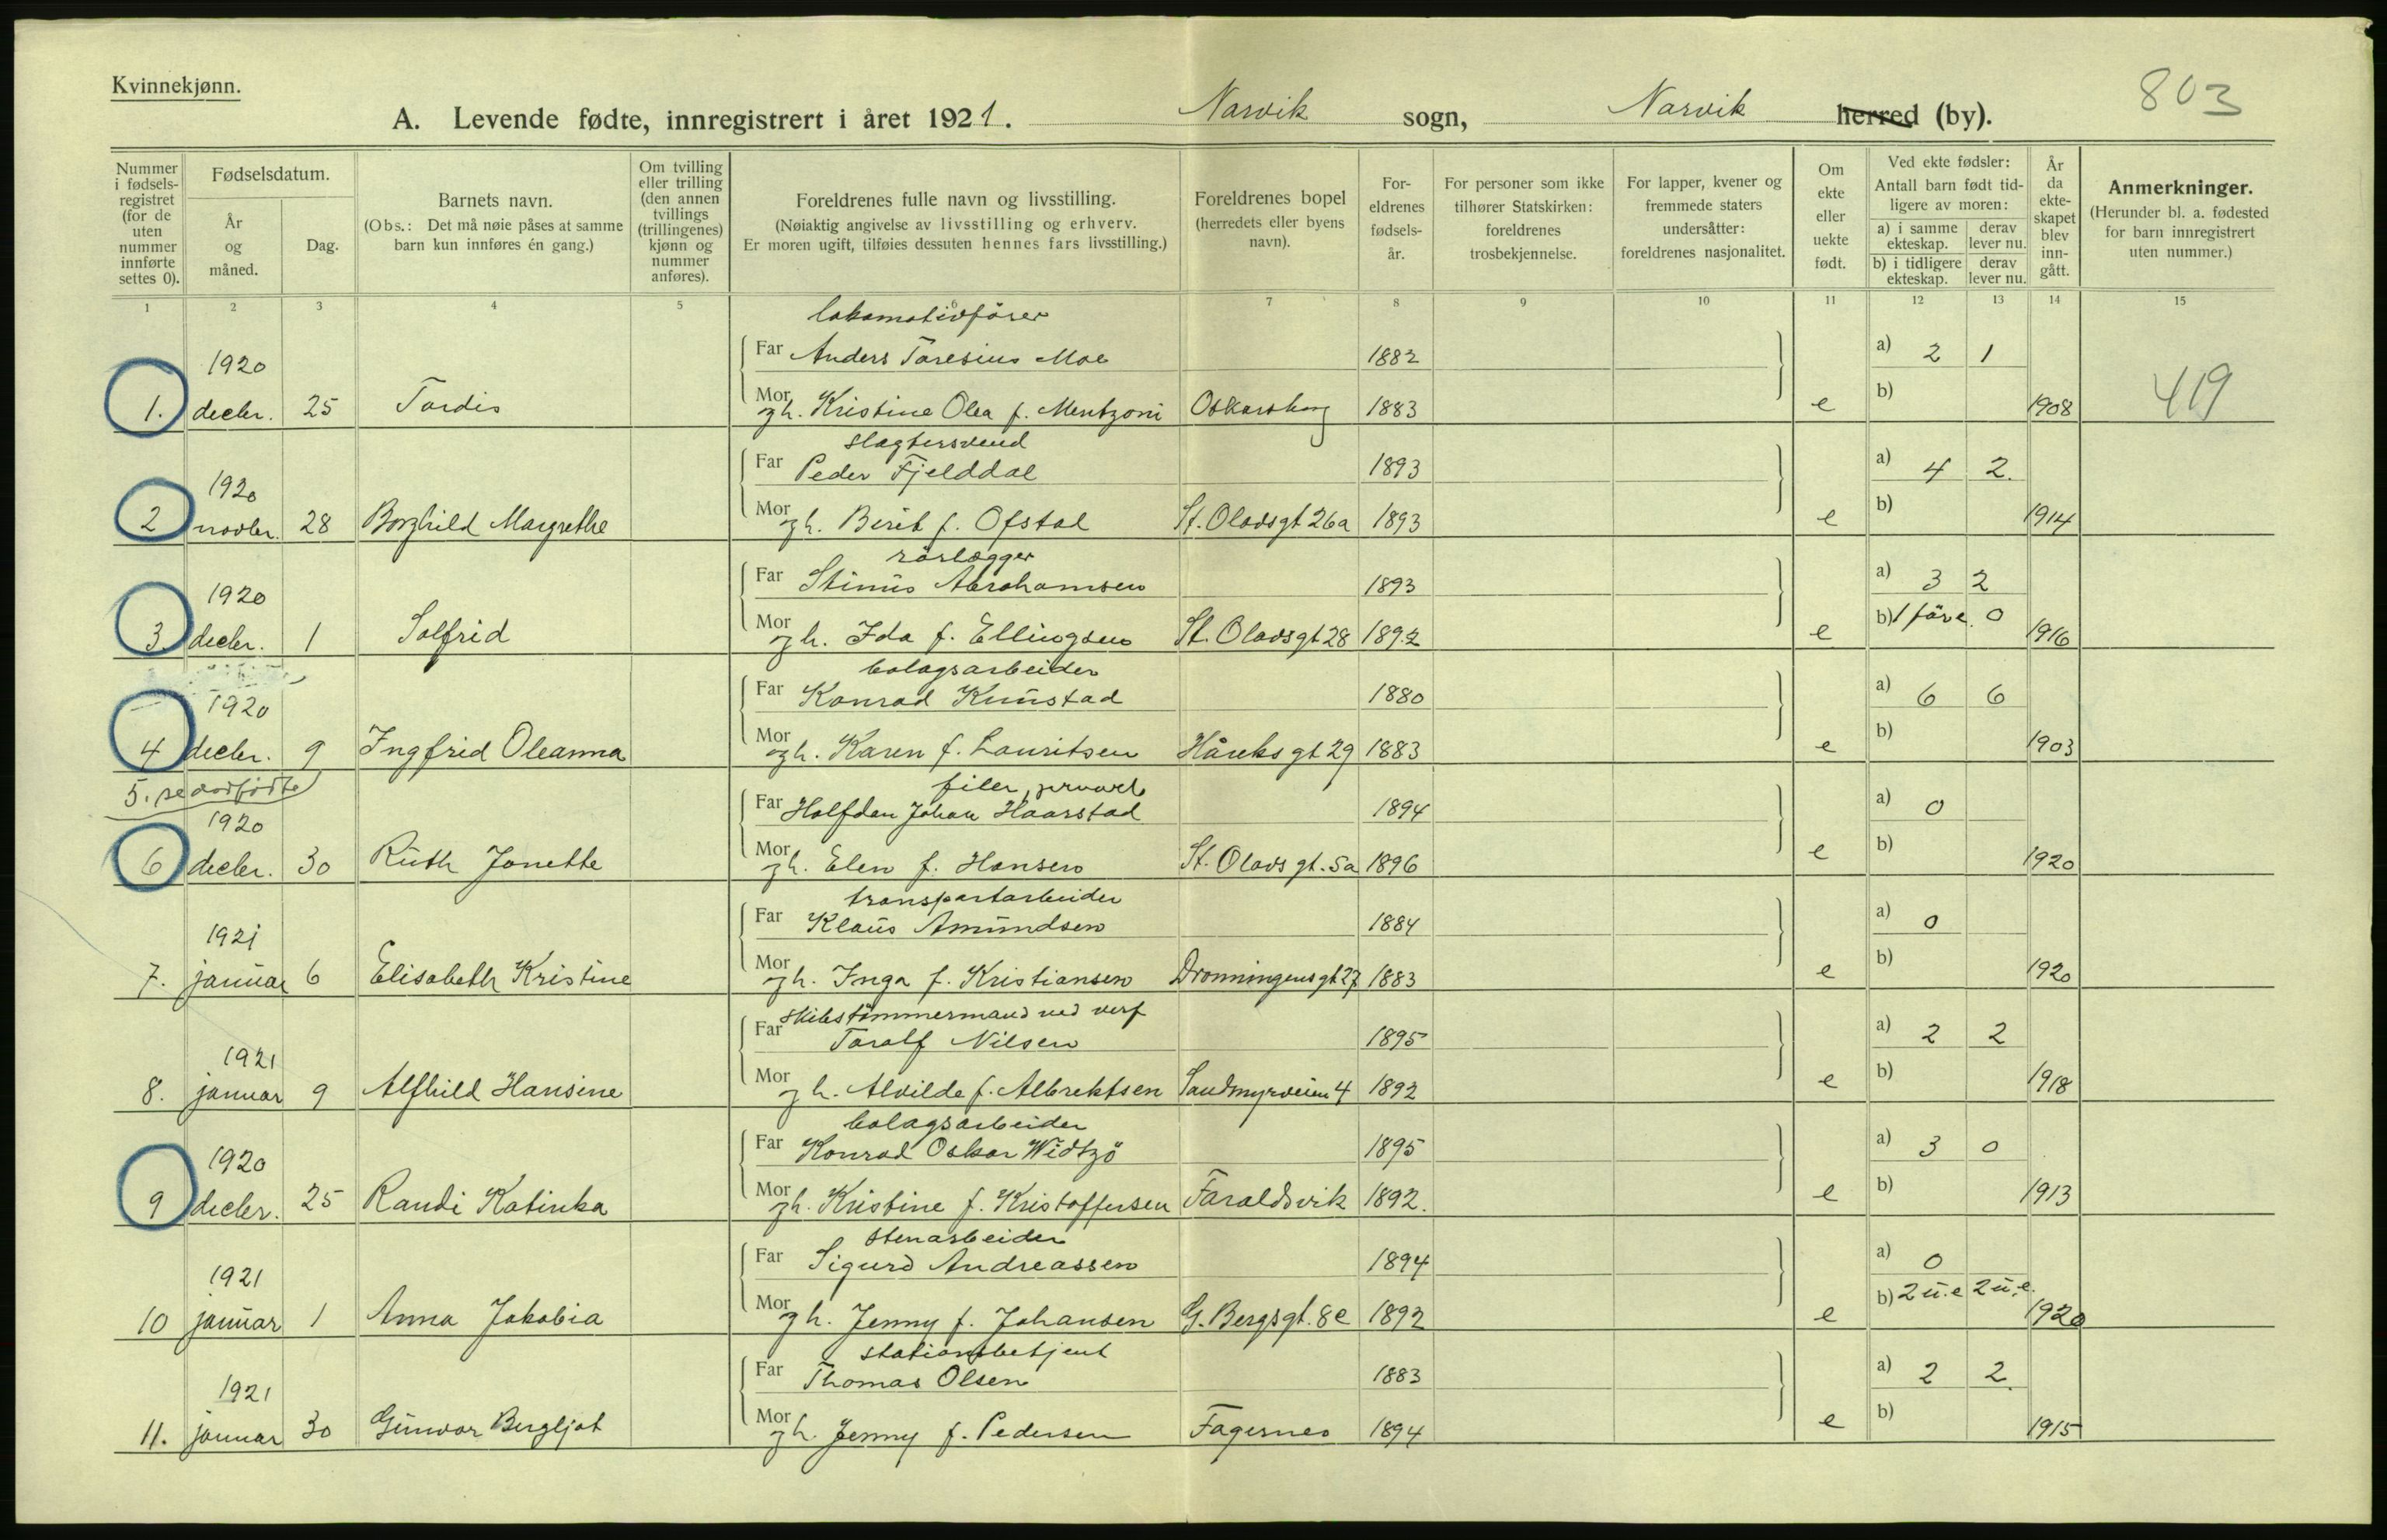 Kvinnekjønn.
803
A. Levende fødte, innregistrert i året 1921. Narvik sogn, Narvik herred (by).
Nummer i fødsels-registret (for de uten nummer innførte settes 0).
Fødselsdatum.
År og måned.
Dag.
Barnets navn.
(Obs.: Det må nøie påses at samme barn kun innføres én gang.)
Om tvilling eller trilling (den annen tvillings (trillingenes) kjønn og nummer anføres).
Foreldrenes fulle navn og livsstilling.
(Nøiaktig angivelse av livsstilling og erhverv. Er moren ugift, tilføies dessuten hennes fars livsstilling.)
Foreldrenes bopel (herredets eller byens navn).
For-eldrenes fødsels-år.
For personer som ikke tilhører Statskirken: foreldrenes trosbekjennelse.
For lapper, kvener og fremmede staters undersåtter: foreldrenes nasjonalitet.
Om ekte eller uekte født.
Ved ekte fødsler: Antall barn født tid-ligere av moren:
a) i samme ekteskap. derav lever nu.
b) i tidligere ekteskap. derav lever nu.
År da ekte-skapet blev inn-gått.
Anmerkninger.
(Herunder bl. a. fødested for barn innregistrert uten nummer.)
1 2 3 4 5 6 7 8 9 10 11 12 13 14 15
lokomotivfører
1920 Far Anders Toresius Moe 1882 a) 2 1
1. decbr. 25 Tordis Mor gh. Kristine Olea f. Mentzoni Oskarsborg 1883 e b) 1908 419
slagtersvend
1920 Far Peder Fjelddal 1893 a) 4 2.
2 novbr. 28 Borghild Margrethe Mor gh. Berit f. Ofstal St. Olavsgt 26a 1893 e b) 1914
rörlægger
1920 Far Stinus Abrahamsen 1893 a) 3 2
3. decbr. 1 Solfrid Mor gh. Ida f. Ellingsen St. Olavsgt 28 1892 e b) 1 före. 0 1916
bolagsarbeider
1920 Far Konrad Kunstad 1880 a) 6 6
4 decbr. 9 Ingfrid Oleanna Mor gh. Karen f. Lauritsen Håreks gt 29 1883 e b) 1903
5. se dødfødte
filer, privat
1920 Far Halfdan Johan Haarstad 1894 a) 0
6 decbr. 30 Ruth Jonette Mor gh. Elen f. Hansen St. Olavs gt. 5a 1896 e b) 1920
transportarbeider
1921 Far Klaus Amundsen 1884 a) 0
7. januar 6 Elisabeth Kristine Mor gh. Inga f. Kristiansen Dronningensgt 27 1883 e b) 1920
skibstömmermand ved verf
1921 Far Toralf Nilsen 1895 a) 2 2
8. januar 9 Alfhild Hansine Mor gh. Alvilde f. Albrektsen Sandmyrveien 4 1892 e b) 1918
bolagsarbeider
1920 Far Konrad Oskar Widtzö 1895 a) 3 0
9 decbr. 25 Randi Katinka Mor gh. Kristine f. Kristoffersen Taraldsvik 1892. e b) 1913
stenarbeider
1921 Far Sigurd Andreassen 1894 a) 0
10 januar 1 Anna Jakobia Mor gh. Jenny f. Johansen G. Bergsgt. 8e 1892 e b) 2 u.e 2 u.e. 1920
stationsbetjent
1921 Far Thomas Olsen 1883 a) 2 2.
11. januar 30 Gunvor Bergljot Mor gh. Jenny f. Pedersen Fagernes 1894 e b) 1915